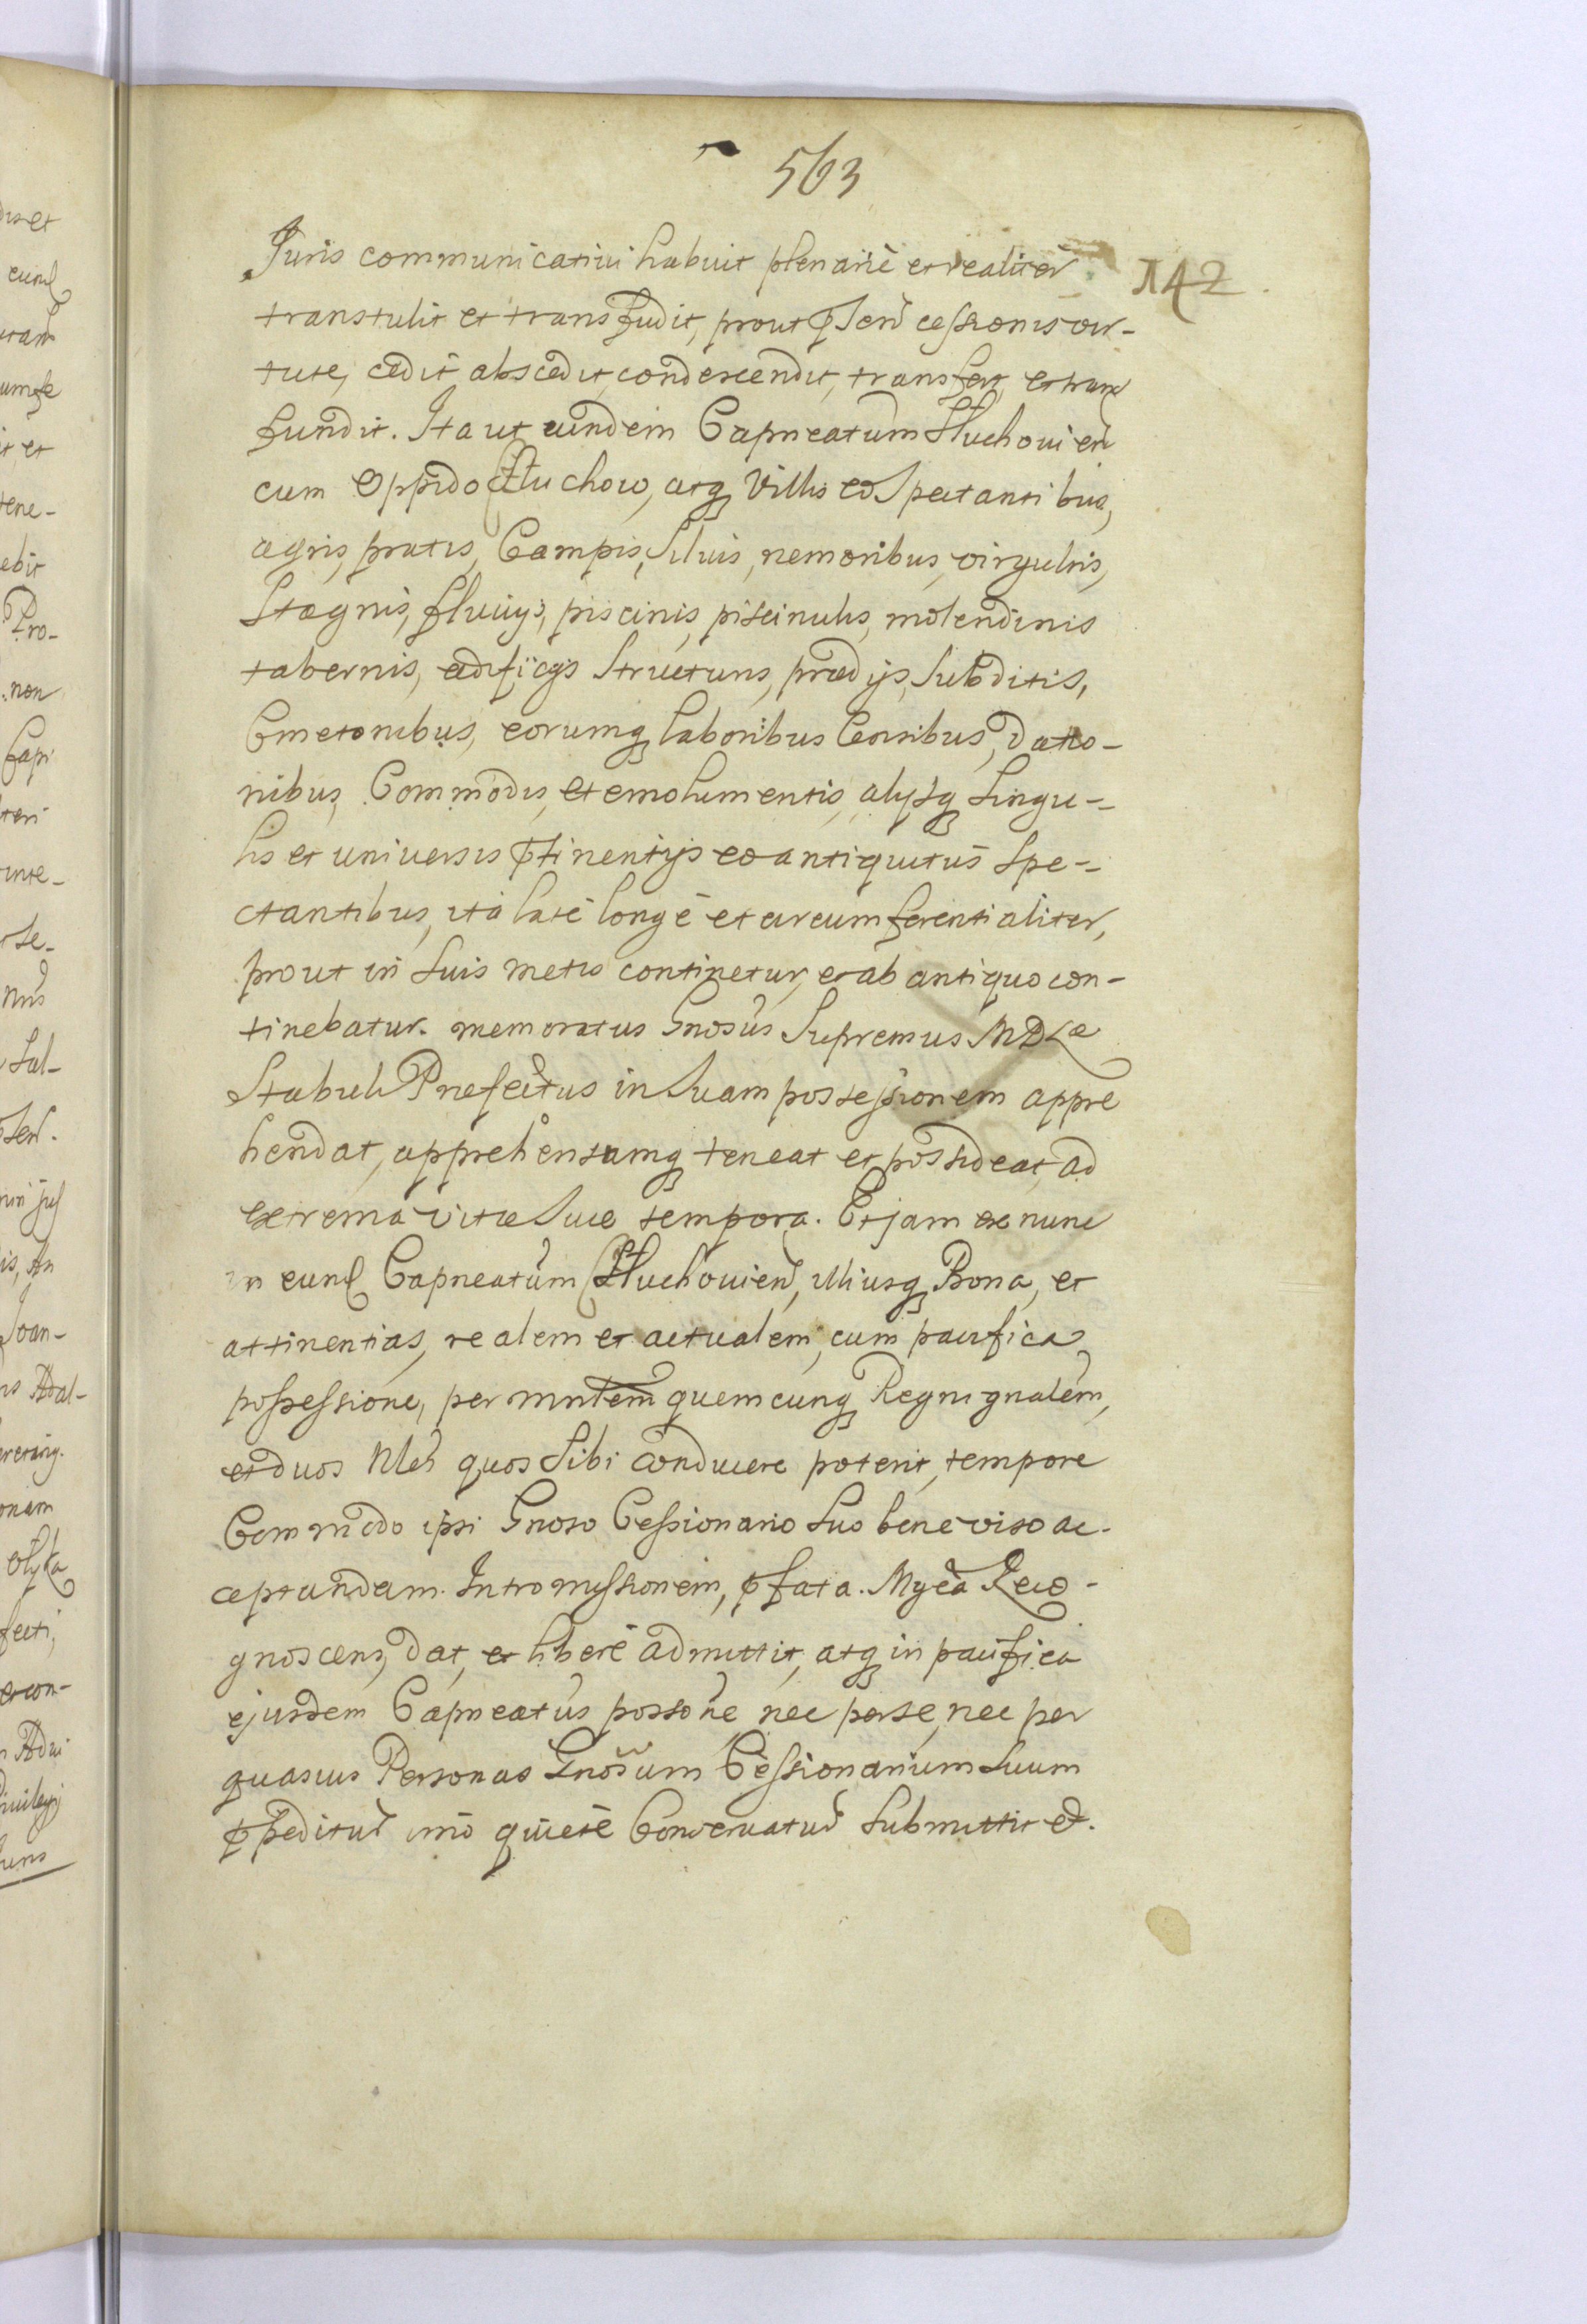 563
142
Juris communicativi habuit plenariè et realiter
transtulit et transfudit, prout pſen̄ cessionis vir-
tute, cedit abscedit, condescendit, transfert, et trans
fundit. Ita ut eundem Capneatum Hłuchovien̄
cum Oppido Hłuchow, atq Villis eo Spectantibus,
agris, pratis, Campis, Siluis, nemoribus, virgultis,
Stagnis, fluvijs, piscinis, piscinulis, molendinis
tabernis, ædificijs Structuris, prædijs, Subditis,
Cmetonibus, eorumq laboribus Censibus, datio-
nibus, Commodis, et emolumentis, alijsq Singu-
lis et universis ptinentijs eo antiquitus Spe-
ctantibus, ità latè longè et circumferentialiter,
prout in Suis metis continetur, et ab antiquo con-
tinebatur. memoratus Gnosus Supremus MDLæ
Stabuli Præfectus in Suam possessionem appre
hendat, apprehensumq teneat et possideat, ad
extrema vitæ Suæ tempora. Et jam ex nunc
in eund Capneatum Hłuchovien̄, illiusq Bona, et
attinentias, realem et actualem, cum pacifica
possessione, per mnlem quemcunq Regni gnalem,
et duos Nles quos Sibi conducere poterit, tempore
Commodo ipsi Gnoso Cessionario Suo bene viso ac-
ceptandam Intromissionem, pfata. Mgcā Reco-
gnoscens, dat, et liberè admittit, atq in pacifica
ejusdem Capneatus possone nec per se, nec per
quasuis Personas Gnosum Cessionarium Suum
ppeditur̄ imò quietè Conservatur̄ Submittit et.